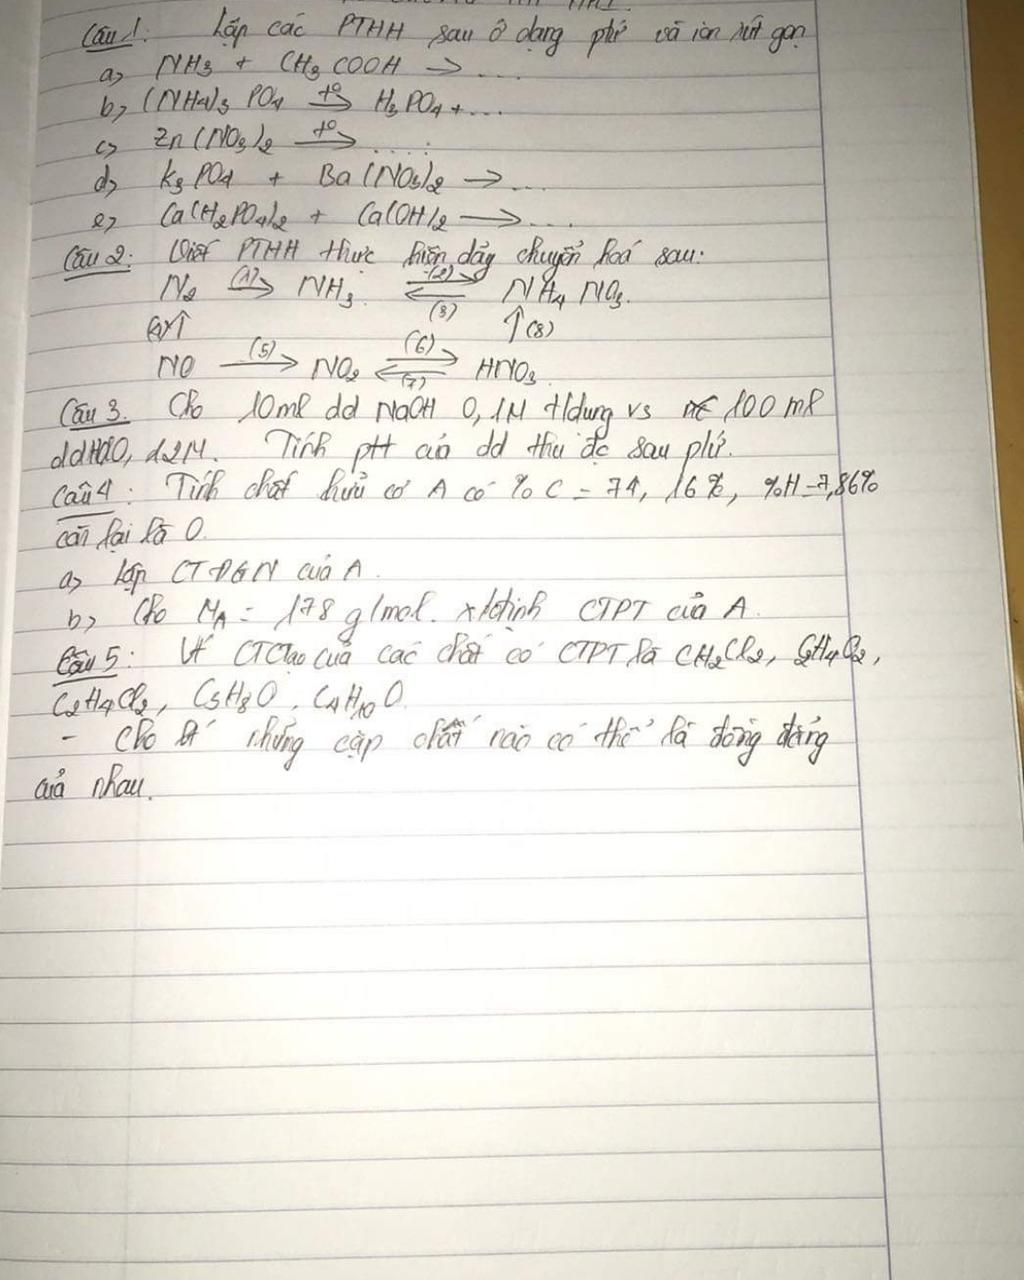 Câu 1: Lập các PTHH sau ở dạng ptử và ion rút gọn
a, NH3 + CH3COOH → ....
b, (NH4)3 PO4 t° → H3PO4 + ...
c, Zn(NO3)2 t° → ....
d, K3PO4 + Ba(NO3)2 → ...
e, Ca(H2PO4)2 + Ca(OH)2 → ....
Câu 2: Viết PTHH thực hiện dãy chuyển hoá sau:
N2 (1) → NH3 (2) ⇌ (3) NH4 NO3.
(4)↑ ↑(8)
NO (5) → NO2 (6) ⇌ (7) HNO3
Câu 3. Cho 10ml dd NaOH 0,1M t/dụng vs 100 ml
dd 0,12M. Tính pH của dd thu đc sau pứ.
Câu 4: Tính chất hữu cơ A có %C = 74,16%, %H = 7,86%
còn lại là O.
a, Lập CTĐGN của A.
b, Cho MA = 178 g/mol. x/định CTPT của A.
Câu 5: Vt CTCTạo của các chất có CTPT là CH2Cl2, C2H4O2,
C2H4Cl2, C3H8O, C4H10O.
- Cho bt những cặp chất nào có thể là đồng đẳng
của nhau.